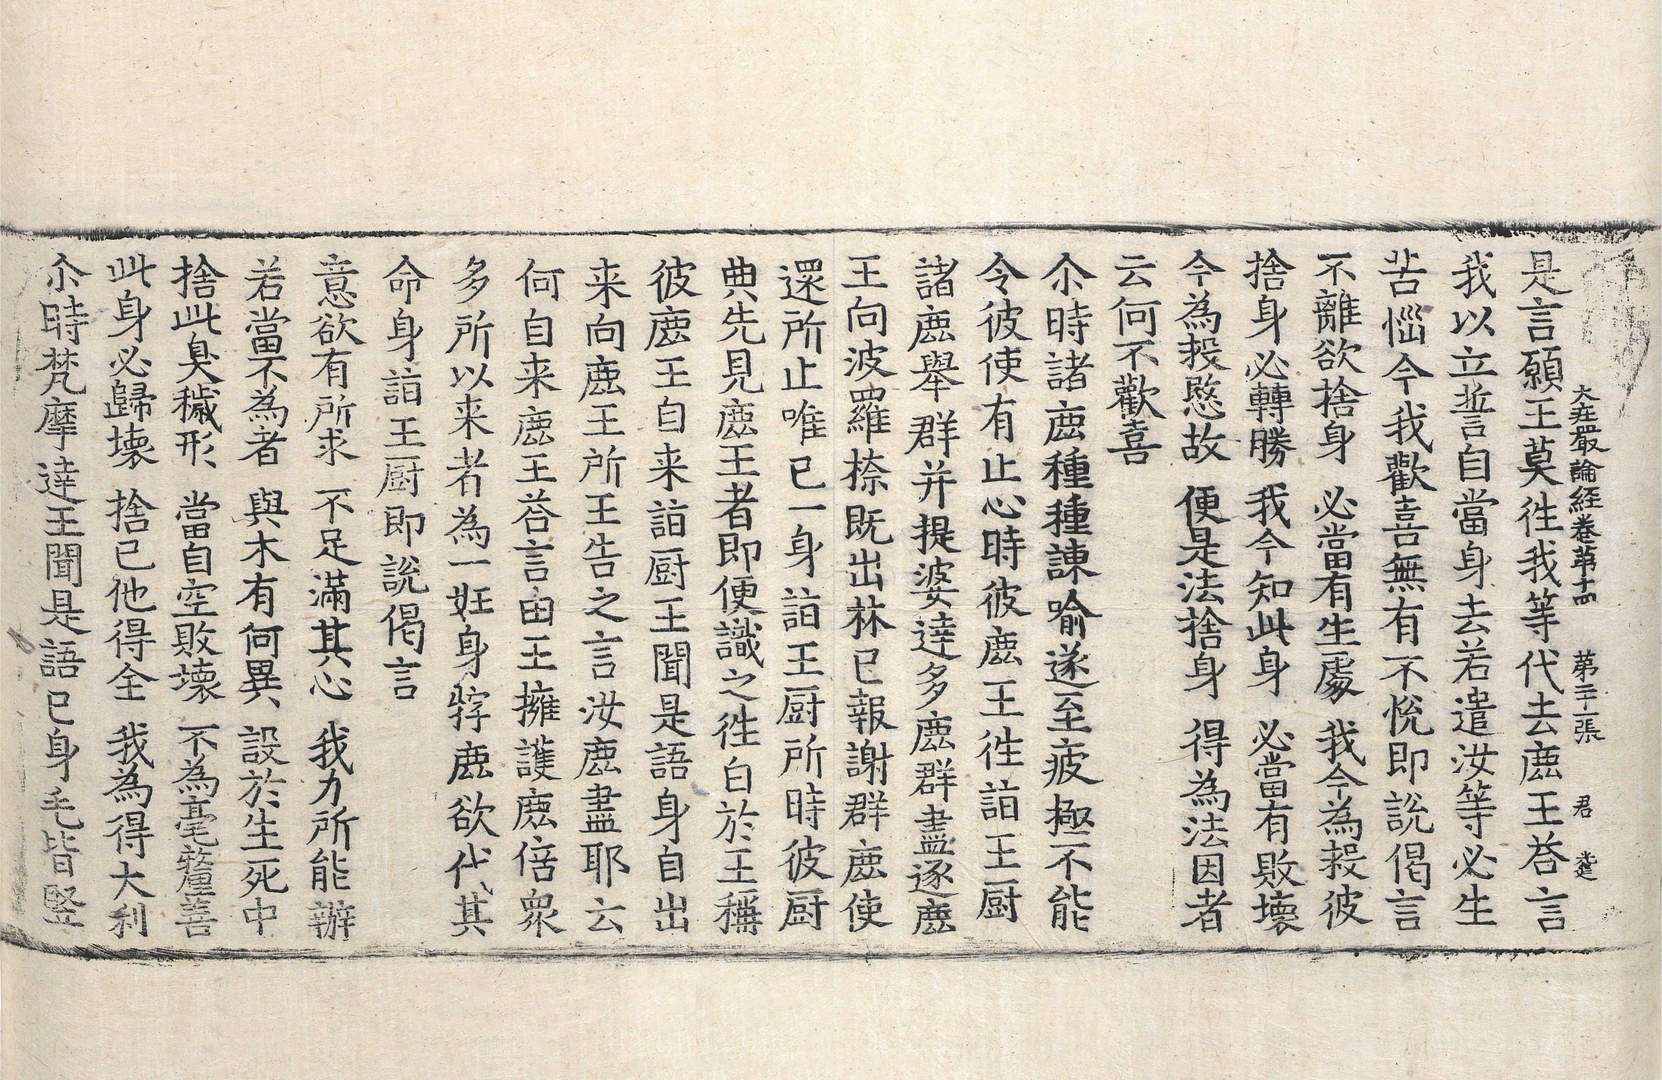 大莊嚴論經卷第十四 第二十二張 君 *
是言願王莫徃我等代去鹿王荅言
我以立誓自當身去若遣汝等必生
苦惱今我歡喜無有不恱即說偈言
不離欲捨身 必當有生處 我今為救彼
捨身必轉勝 我今知此身 必當有敗壞
今為救愍故 便是法捨身 得為法因者
云何不歡喜
尒時諸鹿種種諫喻遂至疲極不能
令彼使有止心時彼鹿王徃詣王厨
諸鹿舉群并提婆達多鹿群盡逐鹿
王向波羅㮈既出林已報謝群鹿使
還所止唯已一身詣王厨所時彼厨
典先見鹿王者即便識之徃白於王稱
彼鹿王自来詣厨王聞是語身自出
来向鹿王所王告之言汝鹿盡耶云
何自来鹿王荅言由王擁護鹿倍衆
多所以来者為一妊身牸鹿欲代其
命身詣王厨即說偈言
意欲有所求 不足滿其心 我力所能辦
若當不為者 與木有何異 設於生死中
捨此臭穢形 當自空敗壞 不為毫釐善
此身必歸壞 捨已他得全 我為得大利
尒時梵摩達王聞是語已身毛皆竪